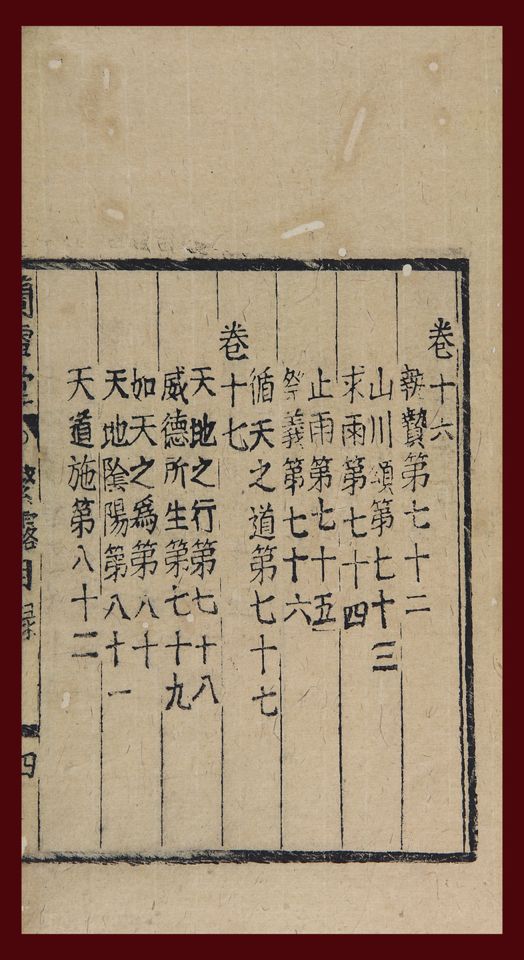 卷十六
執贄第七十二
山川頌第七十三
求雨第七十四
止雨第七十五
祭義第七十六
循天之道第七十七
卷十七
天地之行第七十八
威德所生第七十九
如天之爲第八十
天地陰陽第八十一
天道施第八十二
蘭雪堂 繁露目錄 四